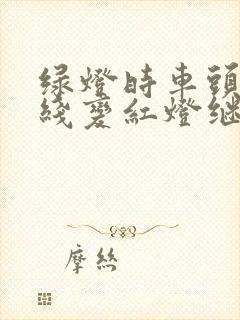 绿燈時車頭
綫變紅燈继
摩丝